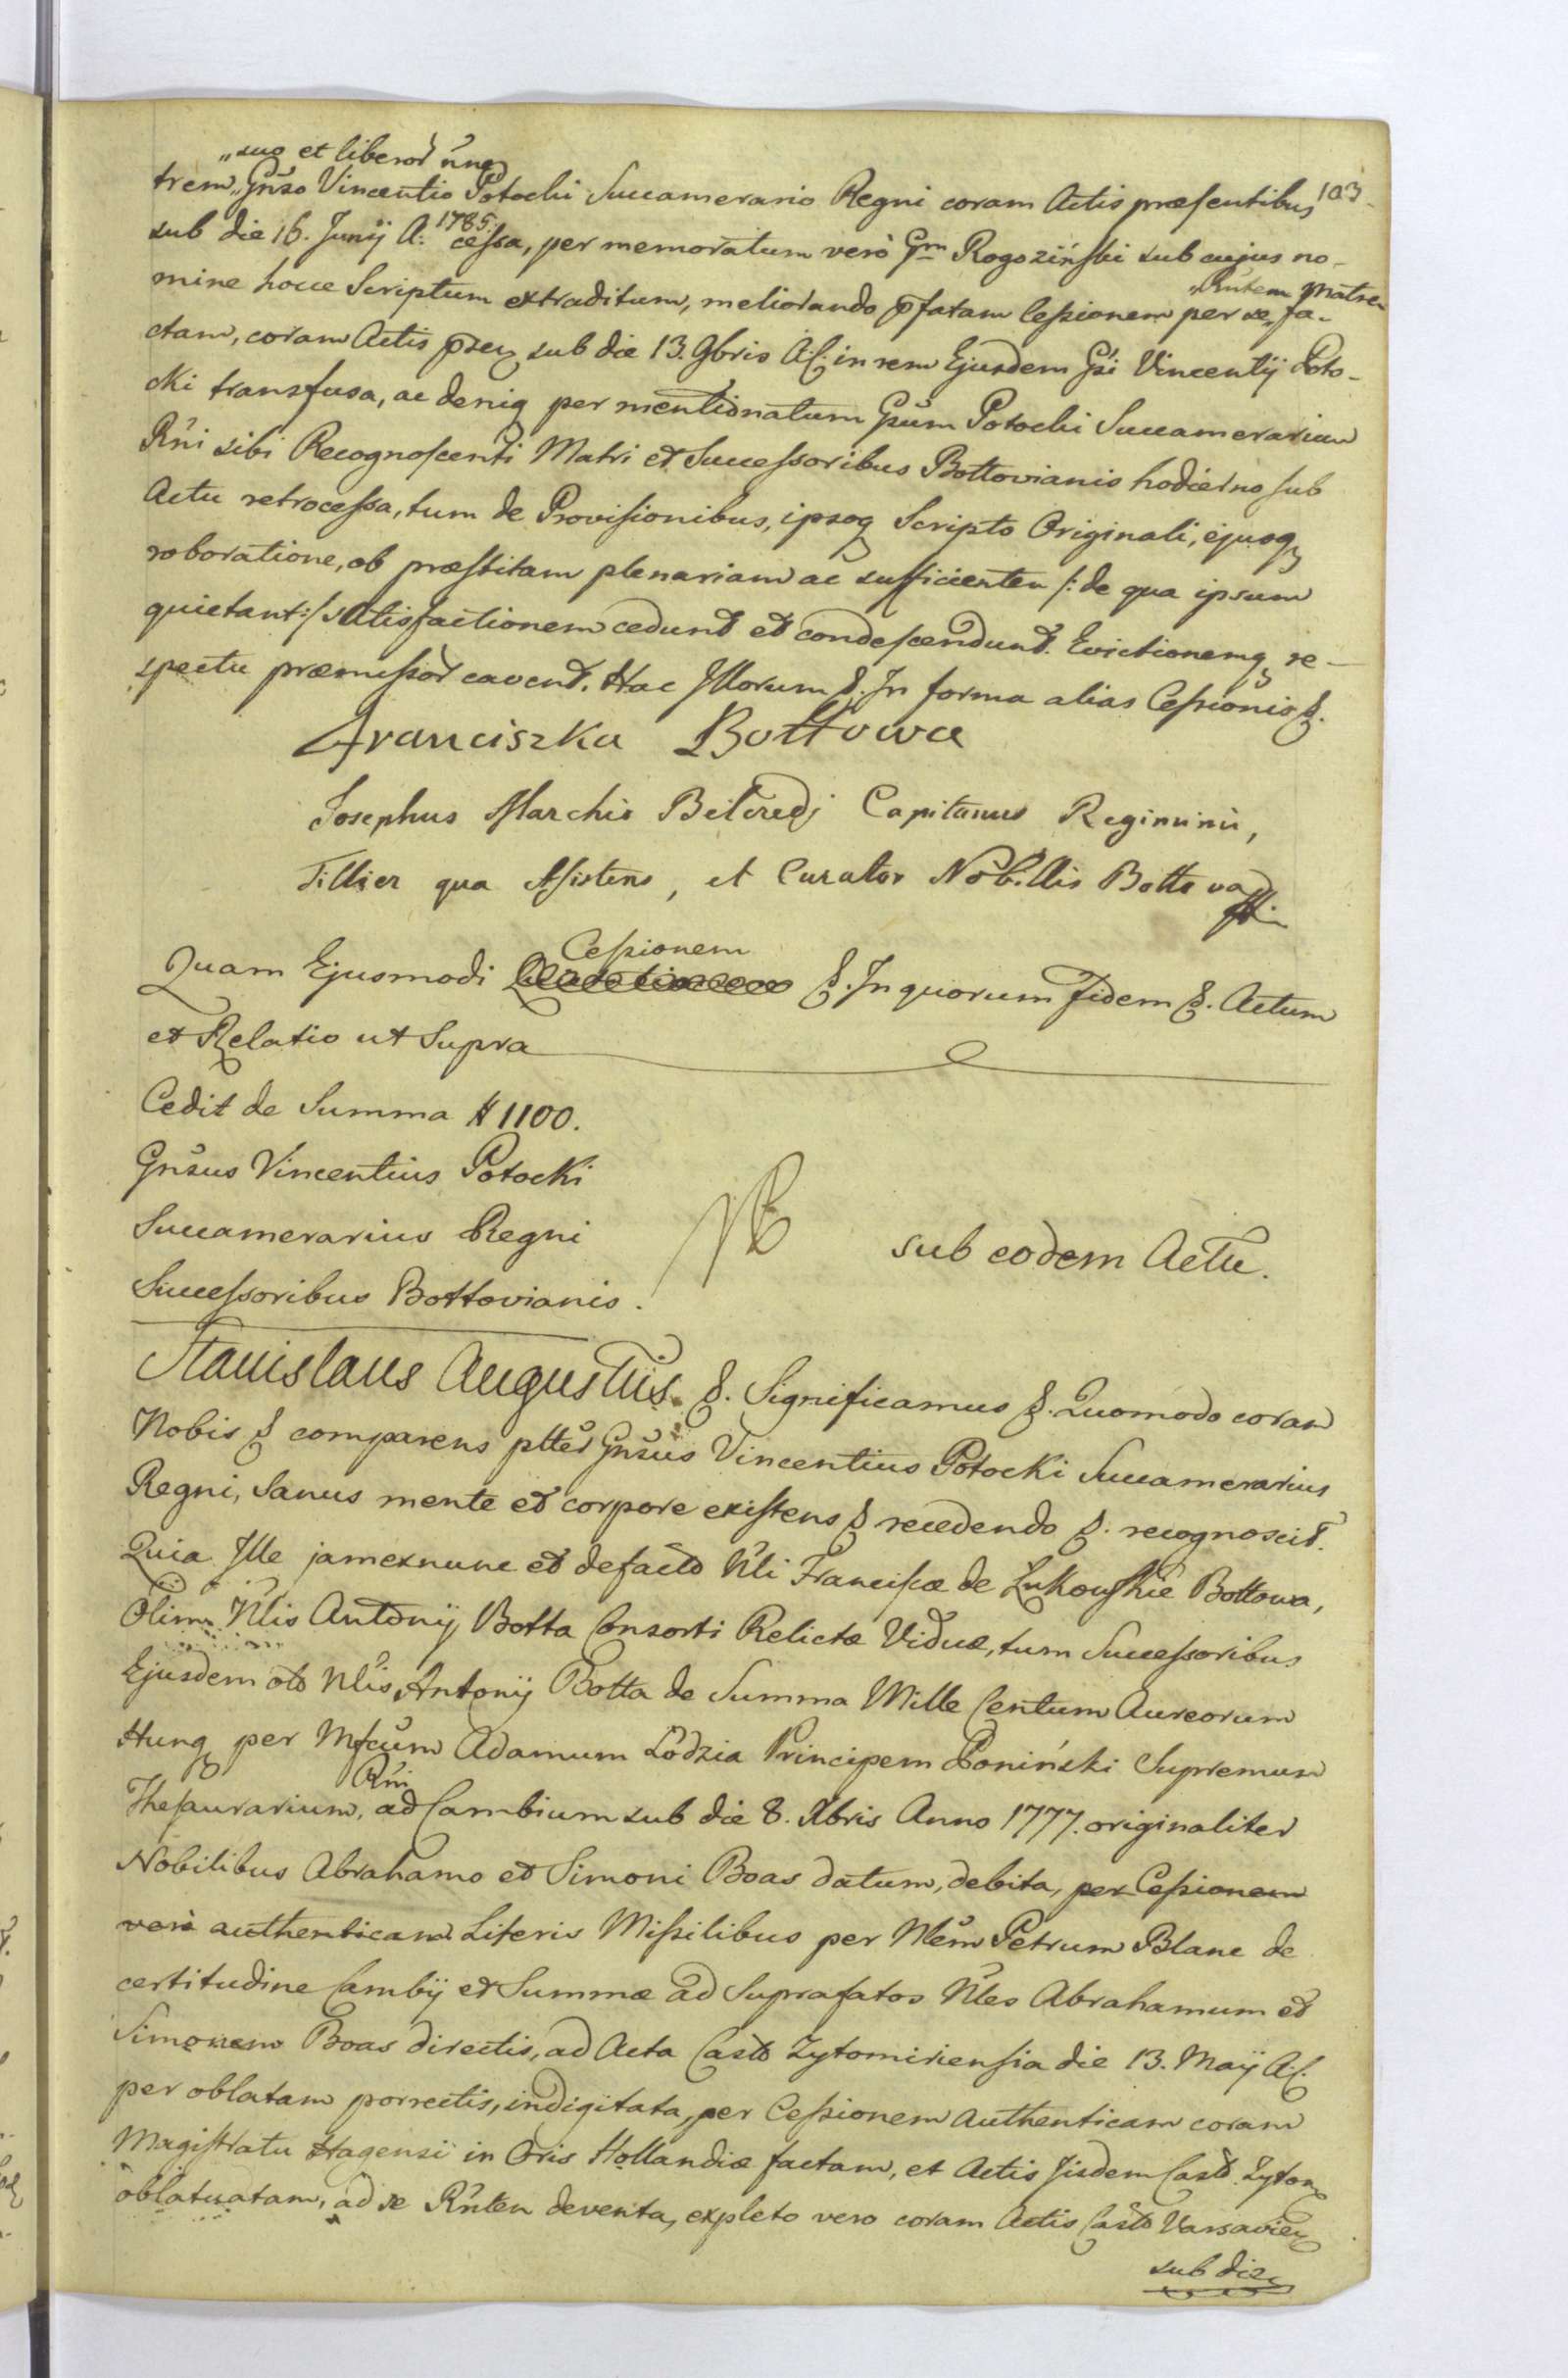 103
„suo et liberor̃ nñe
trem „Gñso Vincentio Potocki Succamerario Regni coram Actis præsentibus
sub die 16. Junij A: 1785. cessa, per memoratum verò Gm Rogoziński sub cujus no-
mine hocce Scriptum extraditum, meliorando p̃fatam Cessionem per se „Rñtem Matrem fa-
ctam, coram Actis p̃sen sub die 13. 9bris A. C. in rem Ejusdem Gsi Vincentij Poto-
cki transfusa, ac deniq per mentionatum Gsum Potocki Succamerarium
Rñi sibi Recognoscenti Matri et Successoribus Bottovianis hodierno sub
Actu retrocessa, tum de Provisionibus, ipsoq Scripto Originali, ejusq
roboratione, ob præstitam plenariam ac sufficientem /: de qua ipsum
quietant :/ satisfactionem cedunt et condescendunt. Evictionemq re-
spectu præmissor̃ cavent. Hac Illorum &. In forma alias Cessionis &.
Franciszka Bottowa
Josephus Marchio Belcredj Capitanus Regiminis,
Tillier qua Assistens, et Curator Nobillis Botto va
Quam Ejusmodi Cessionem &. In quorum fidem &. Actum
et Relatio ut Supra
Cedit de Summa # 1100.
Gñsus Vincentius Potocki
Succamerarius Regni
Successoribus Bottovianis.
sub eodem Actu.
Stanislaus Augustus &. Significamus &. Quomodo coram
Nobis & comparens plter̃ Gñsus Vincentius Potocki Succamerarius
Regni, Sanus mente et corpore existens & recedendo &. recognoscit.
Quia Ille jamexnunc et defacto Nli Franciscæ de Łukowskie Bottowa,
Olim Nlis Antonij Botta Consorti Relictæ Viduæ, tum Successoribus
Ejusdem olt Nlis Antonij Botta de Summa Mille Centum Aureorum
Hung per Mfcum Adamum Lodzia Principem Poniński Supremum
Thesaurarium Rñi ad Cambium sub die 8. Xbris Anno 1777. originaliter
Nobilibus Abrahamo et Simoni Boas datum, debita, per Cessionem
verò authenticam Literis Missilibus per Nlem Petrum Blanc de
certitudine Cambij et Summæ ad Suprafatos Nles Abrahamum et
Simonem Boas directis, ad Acta Castr Zytomiriensia die 13. Maij A. C.
per oblatam porrectis, indigitata, per Cessionem Authenticam coram
Magistratu Hagensi in Oris Hollandiæ factam, et Actis Iisdem Castr. Zytom
oblatuatam, ad se Rñtem deventa, expleto vero coram Actis Castr Varsavien
sub die